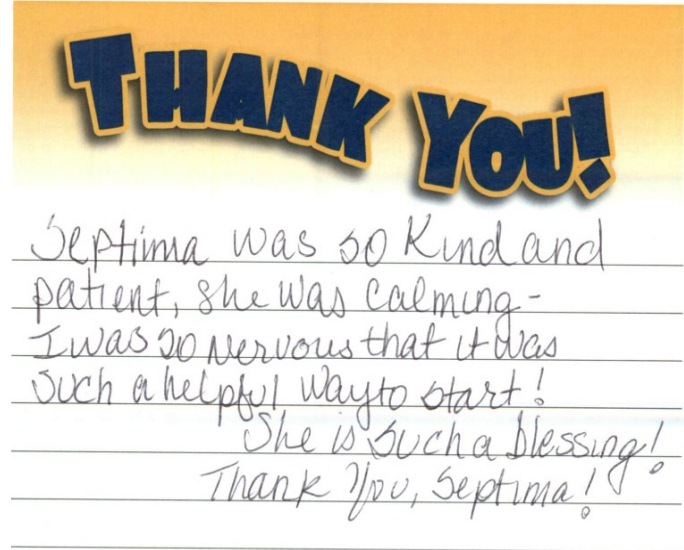 THANK YOU!
Septima was so Kind and
patient, she was calming -
I was so nervous that it was
such a helpful way to start!
She is such a blessing!
Thank You, Septima!